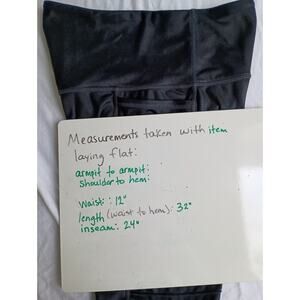 Measurements taken with item
laying flat:
armpit to armpit:
shoulder to hem:
Waist: 12"
length (waist to hem): 32"
inseam: 24"